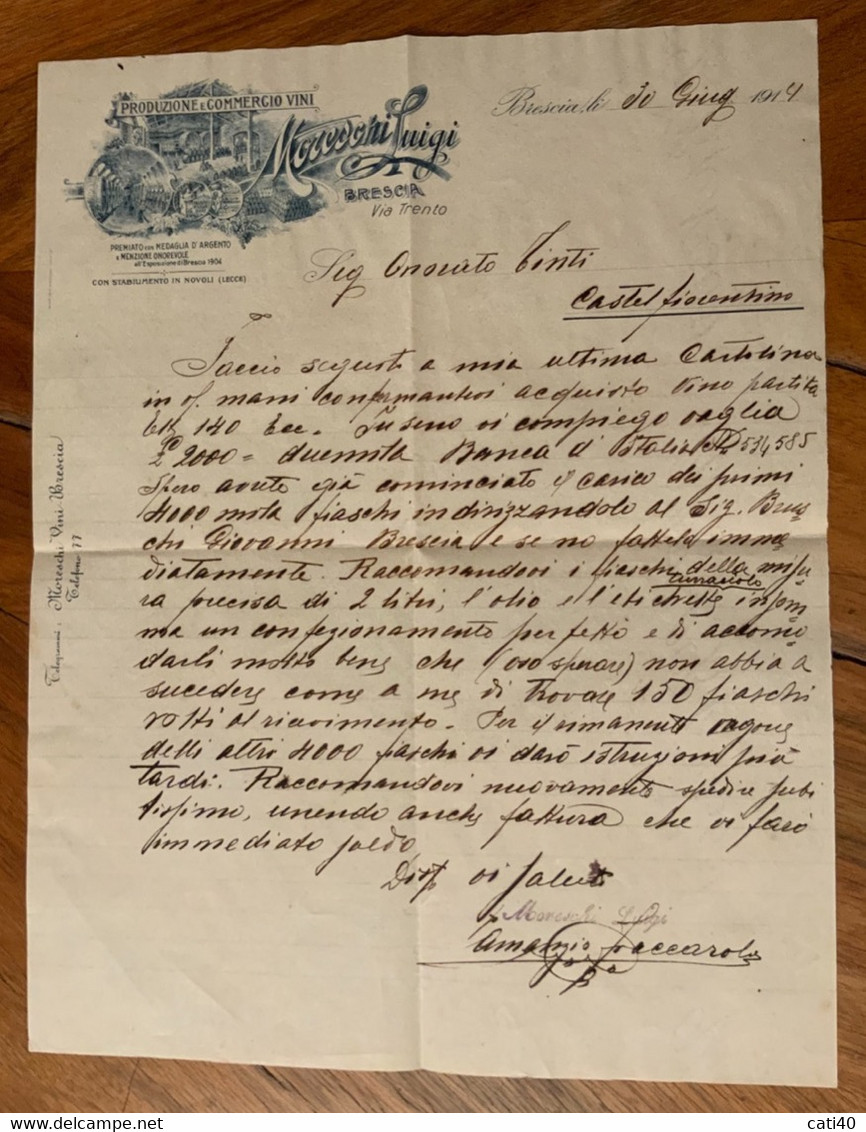 PRODUZIONE E COMMERCIO VINI
Moreschi Luigi
BRESCIA
Via Trento
PREMIATO CON MEDAGLIA D'ARGENTO
E MENZIONE ONOREVOLE
all'Esposizione di Brescia 1904
CON STABILIMENTO IN NOVOLI (LECCE)
Brescia, li 30 Giug 1914
Sig Onorato Tinti
Castelfiorentino
Faccio seguito a mia ultima Cartolina
in vs. mani confermantevi acquisto vino partita
140 Ecc. In seno vi compiego vaglia
£ 2000 = duemila Banca d'Italia N 534585
Spero avrete già cominciato il carico dei primi
4000 mila fiaschi indirizzandolo al Sig. Brus
chi Giovanni Brescia e se no fattelo imme
diatamente. Raccomandovi i fiaschi della misu
ra precisa di 2 litri, l'olio e l'etichetta insom
ma un confezionamento perfetto e di accomo
darli molto bene che (oso sperare) non abbia a
succedere come a me di trovare 150 fiaschi
rotti al ricevimento. Per il rimanente vagone
delli altri 4000 fiaschi vi darò istruzioni più
tardi. Raccomandovi nuovamente spedire subi
tissimo, unendo anche fattura che vi farò
immediato saldo
Dist vi saluto
Moreschi Luigi
Telegrammi: Moreschi Vini-Brescia
Telefono 77
cati40